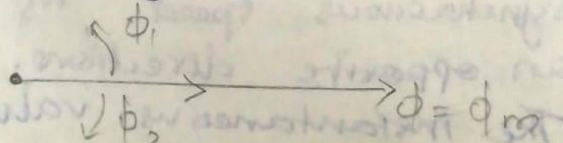 ϕ₁
ϕ = ϕm
ϕ₂